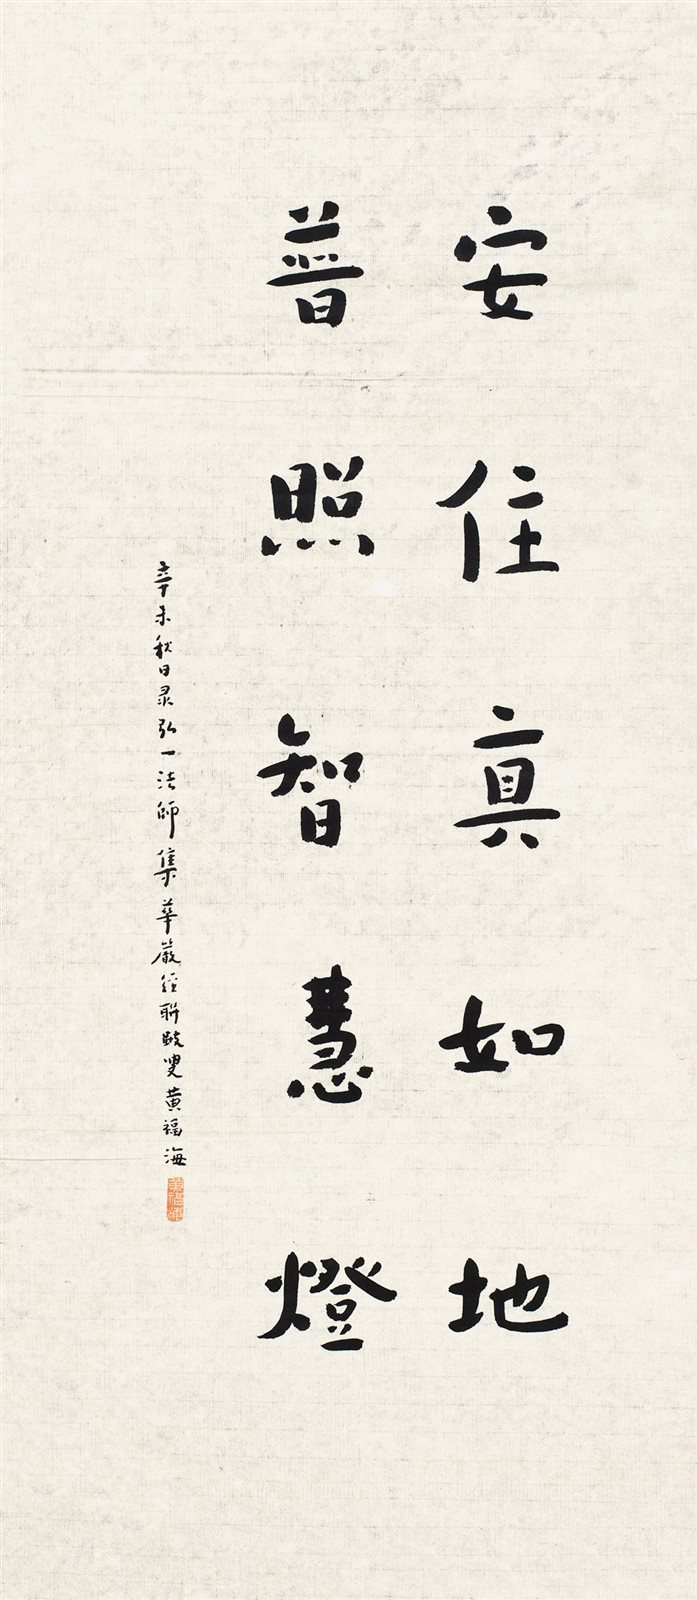 安住真如地
普照智慧燈
辛未秋日录弘一法師集華嚴經聯 叟黄福海